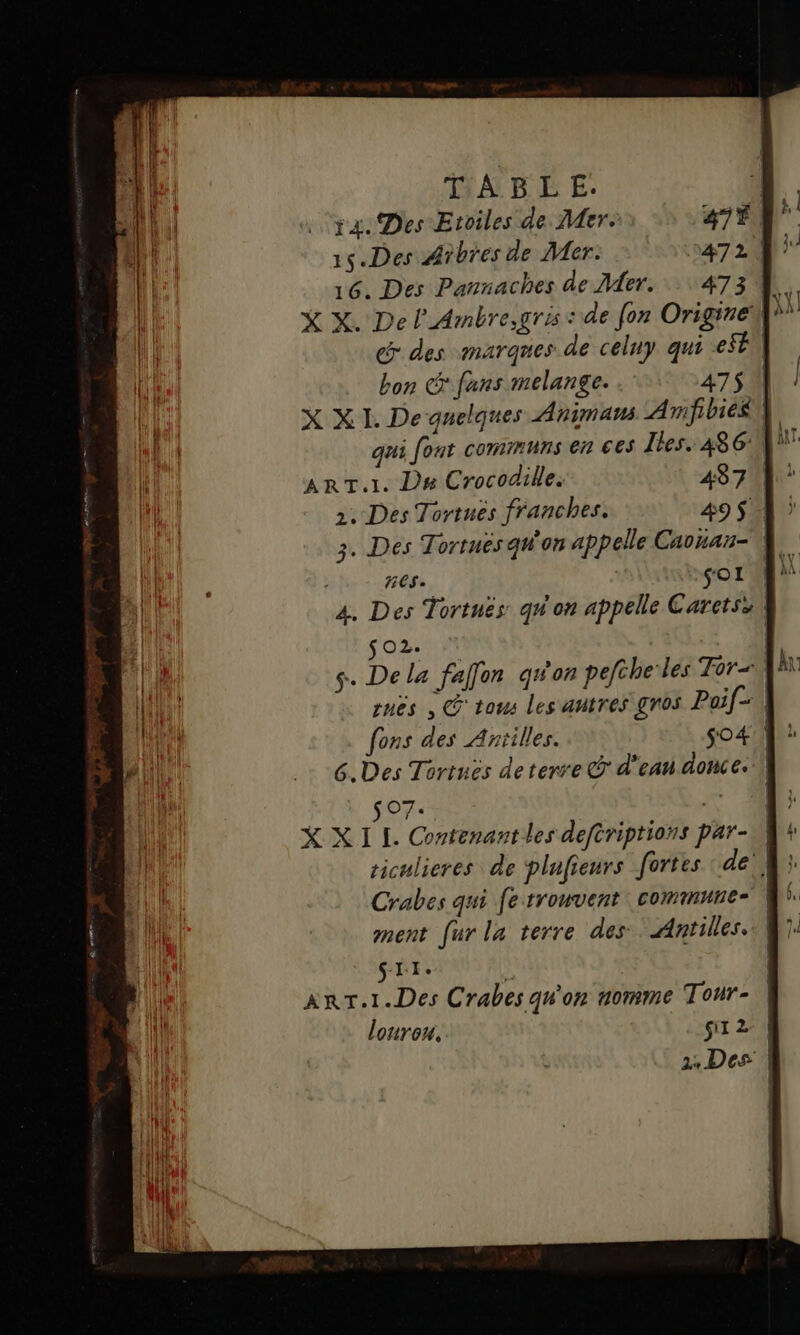 TABLE.
14. Des Etoiles de Mer. 471
15. Des Arbres de Mer. 472
16. Des Pannaches de Mer. 473
XX. De l'Ambre gris : de ſon Origine
& des marques de celuy qui eſt
bon & ſans melange. 475
XXI. De quelques Animaus Amfibies
qui ſont communs en ces Iles. 486
ART. 1. Du Crocodille. 487
2. Des Tortuës franches. 495
3. Des Tortuës qu'on appelle Caoüan-
nes. 501
4. Des Tortuës qu'on appelle Carets,
502.
5. De la faſſon qu'on peſche les Tor-
tuës, & tous les autres gros Poiſ-
ſons des Antilles. 504
6. Des Tortuës de terre & d'eau douce.
507.
XXII. Contenant les deſcriptions par-
ticulieres de pluſieurs ſortes de
Crabes qui ſe trouvent commune-
ment ſur la terre des Antilles.
511.
ART. 1. Des Crabes qu'on nomme Tour-
lourou, 512
2. Des